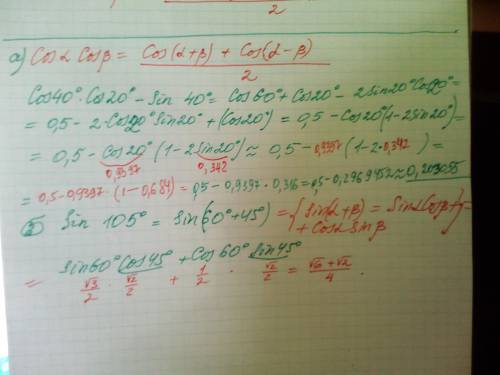 2
a) Cosα Cosβ = (Cos(α+β) + Cos(α-β)) / 2
Cos40°·Cos20° - Sin 40° = Cos60° + Cos20° - 2Sin20°Cos20° =
= 0,5 - 2·Cos20°Sin20° + (Cos20°) = 0,5 - Cos20°(1-2Sin20°) =
= 0,5 - Cos20° (1-2Sin20°) ≈ 0,5 - 0,9397 (1-2·0,342) =
0,9397 0,342
= 0,5-0,9397·(1-0,684) = 0,5-0,9397·0,316 = 0,5-0,2969452 ≈ 0,203055
Sin 105° = Sin(60°+45°) = {Sin(α+β) = Sinα Cosβ +
+ Cosα Sinβ
Sin60° Cos45° + Cos60° Sin45°
= √3/2 · √2/2 + 1/2 · √2/2 = (√6+√2)/4.